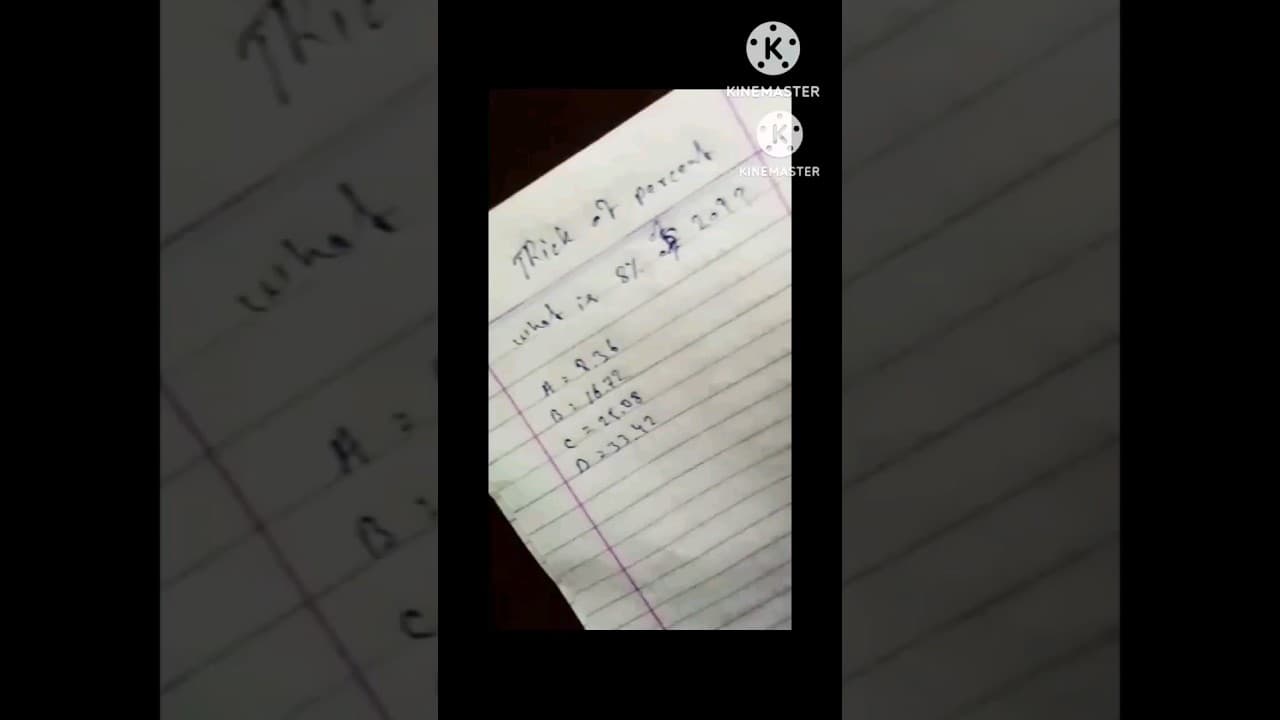 KINEMASTER
KINEMASTER
Trick of percent
what is 8% of 2092
A = 8.36
B = 16.72
C = 25.08
D = 33.42